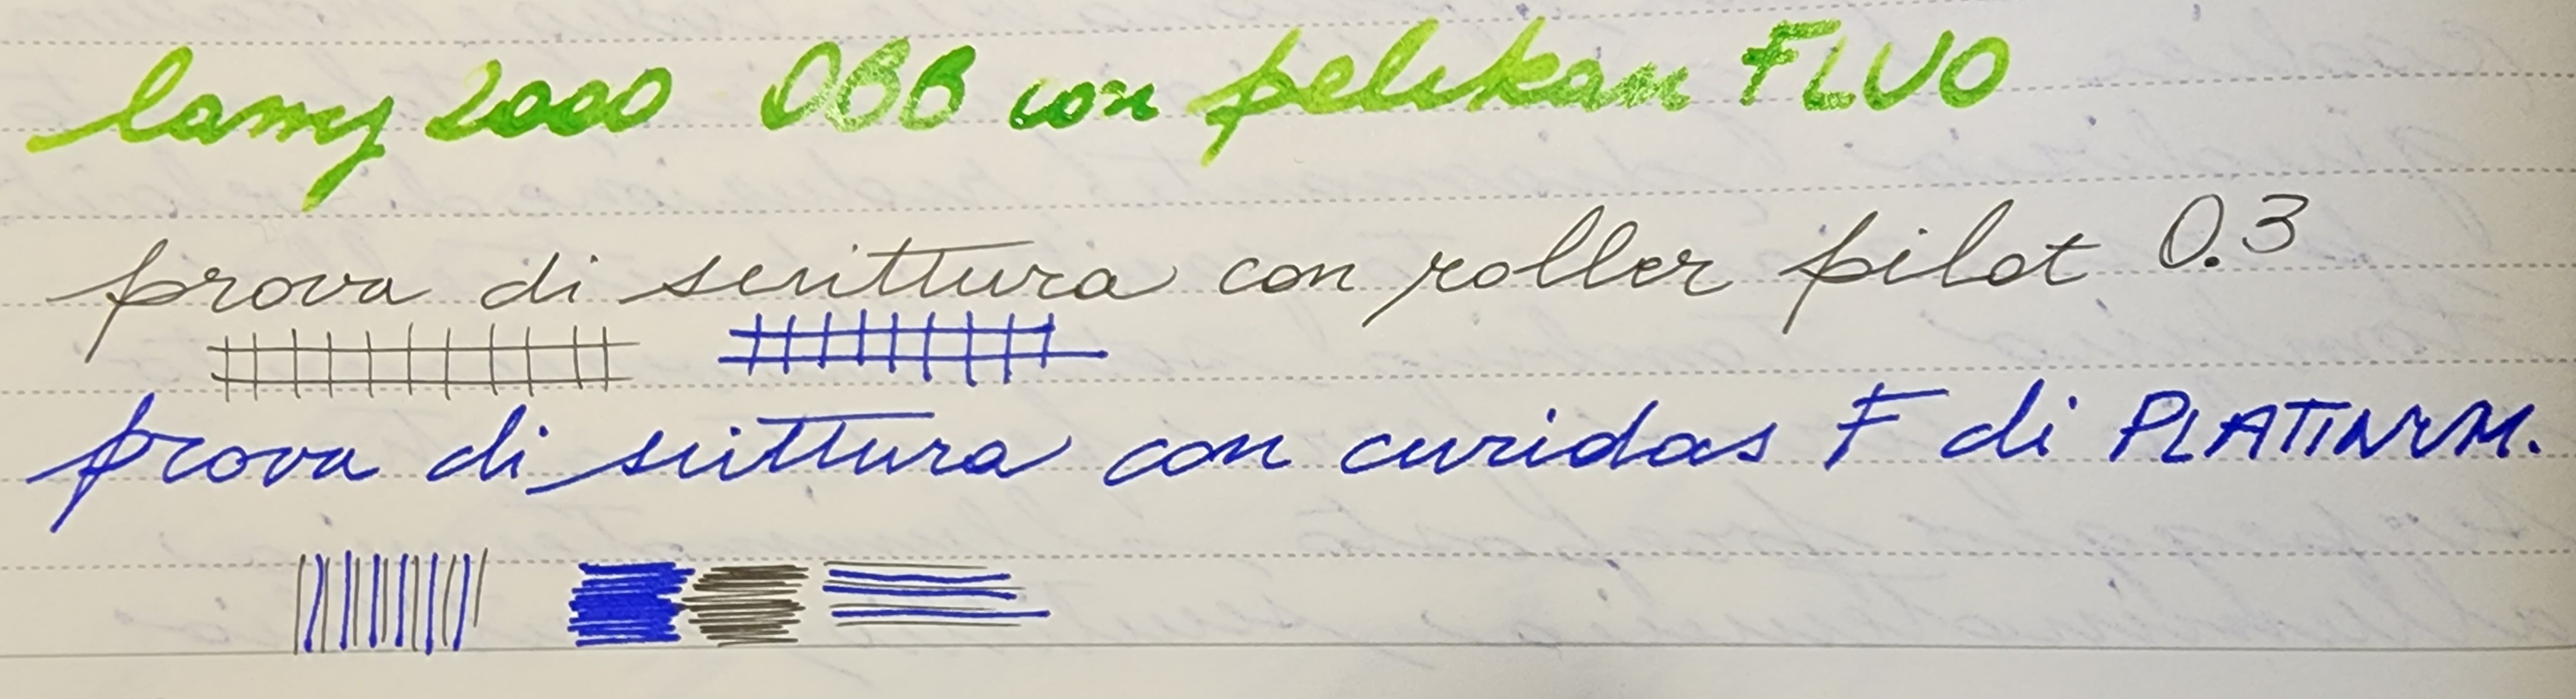 lamy 2000 OBB con pelikan FLUO
prova di scrittura con roller pilot 0.3
prova di scrittura con curidas F di PLATINUM.